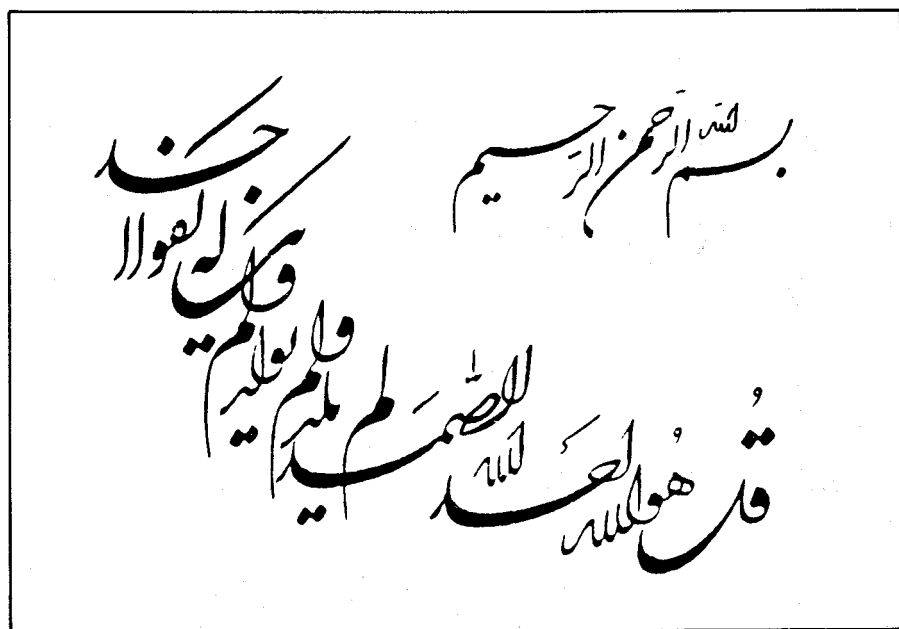 بسم الله الرَحمن الرَحیم
قُل هُو الله احَد الله الصَّمَد لم یلد و لم یولد و لم یکن له کفوا احد